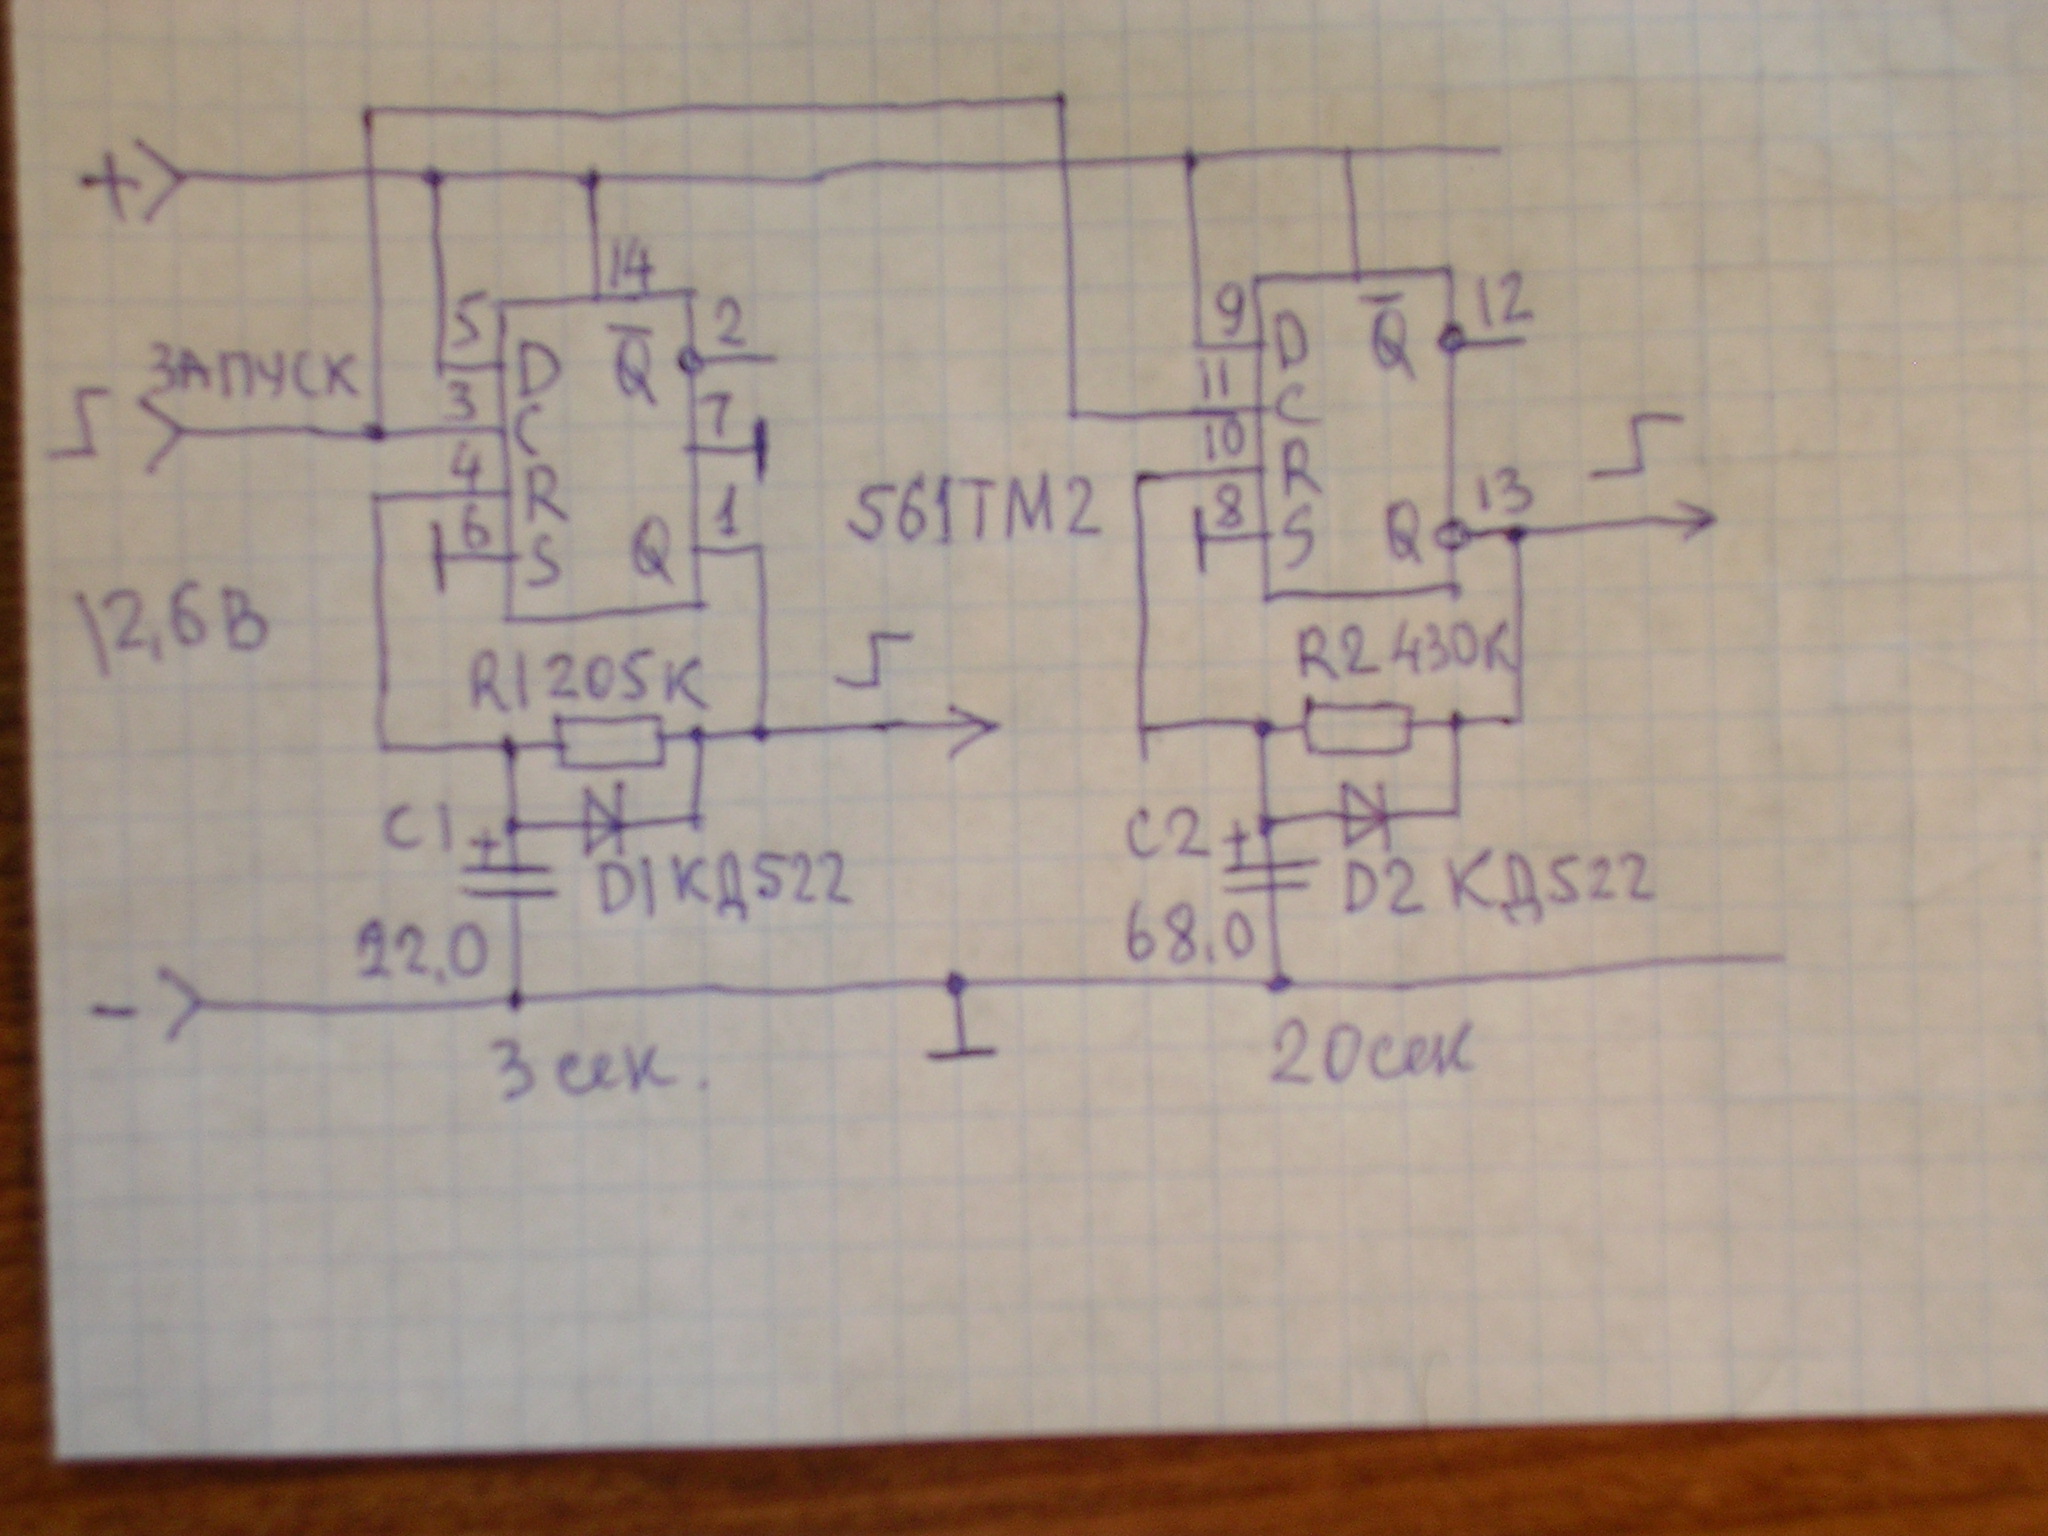 +
14
5 D Q̅ 2
ЗАПУСК
3 C 7
4 R
6 S Q 1
561ТМ2
9 D Q̅ 12
11 C
10 R
8 S Q 13
12,6В
R1 205К
R2 430К
C1 +
22,0
D1 КД522
C2 +
68,0
D2 КД522
-
3 сек.
20сек